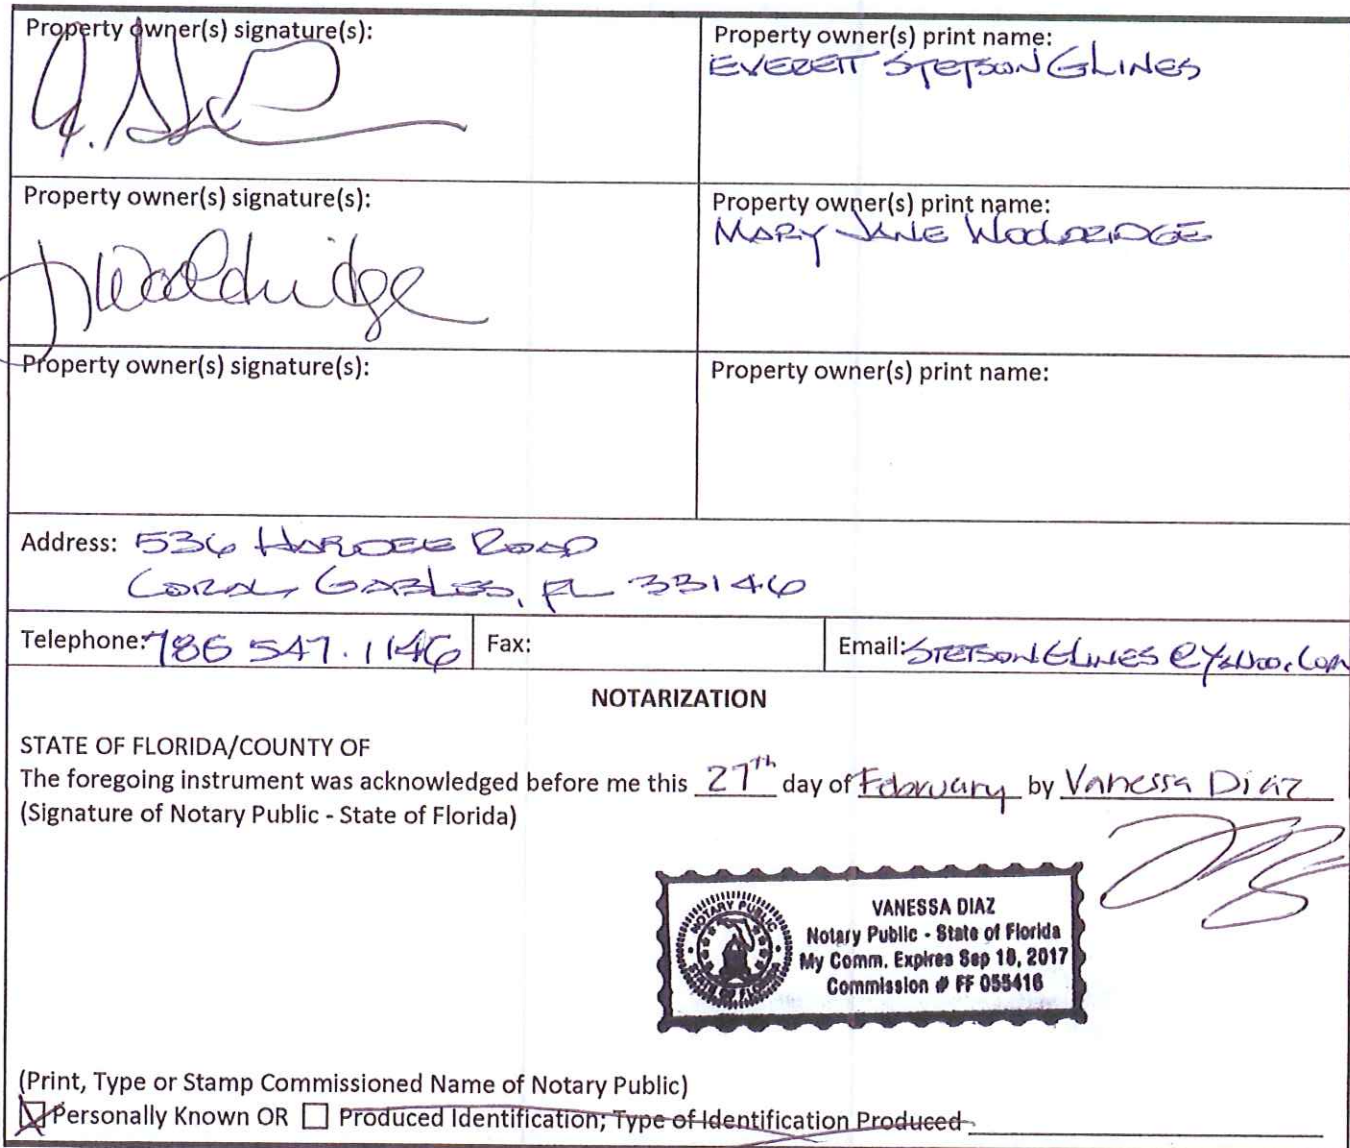 Property owner(s) signature(s):
Property owner(s) print name:
EVERETT STETSON GLINES
Property owner(s) signature(s):
Property owner(s) print name:
MARY JANE WOOLDRIDGE
J Wooldridge
Property owner(s) signature(s):
Property owner(s) print name:
Address: 536 HARDEE ROAD
CORAL GABLES, FL 33146
Telephone: 786 547.1146 Fax: Email: STETSONGLINES@YAHOO.COM
NOTARIZATION
STATE OF FLORIDA/COUNTY OF
The foregoing instrument was acknowledged before me this 27th day of February by Vanessa Diaz
(Signature of Notary Public - State of Florida)
NOTARY PUBLIC
STATE OF FLORIDA
VANESSA DIAZ
Notary Public - State of Florida
My Comm. Expires Sep 18, 2017
Commission # FF 055416
(Print, Type or Stamp Commissioned Name of Notary Public)
Personally Known OR Produced Identification; Type of Identification Produced